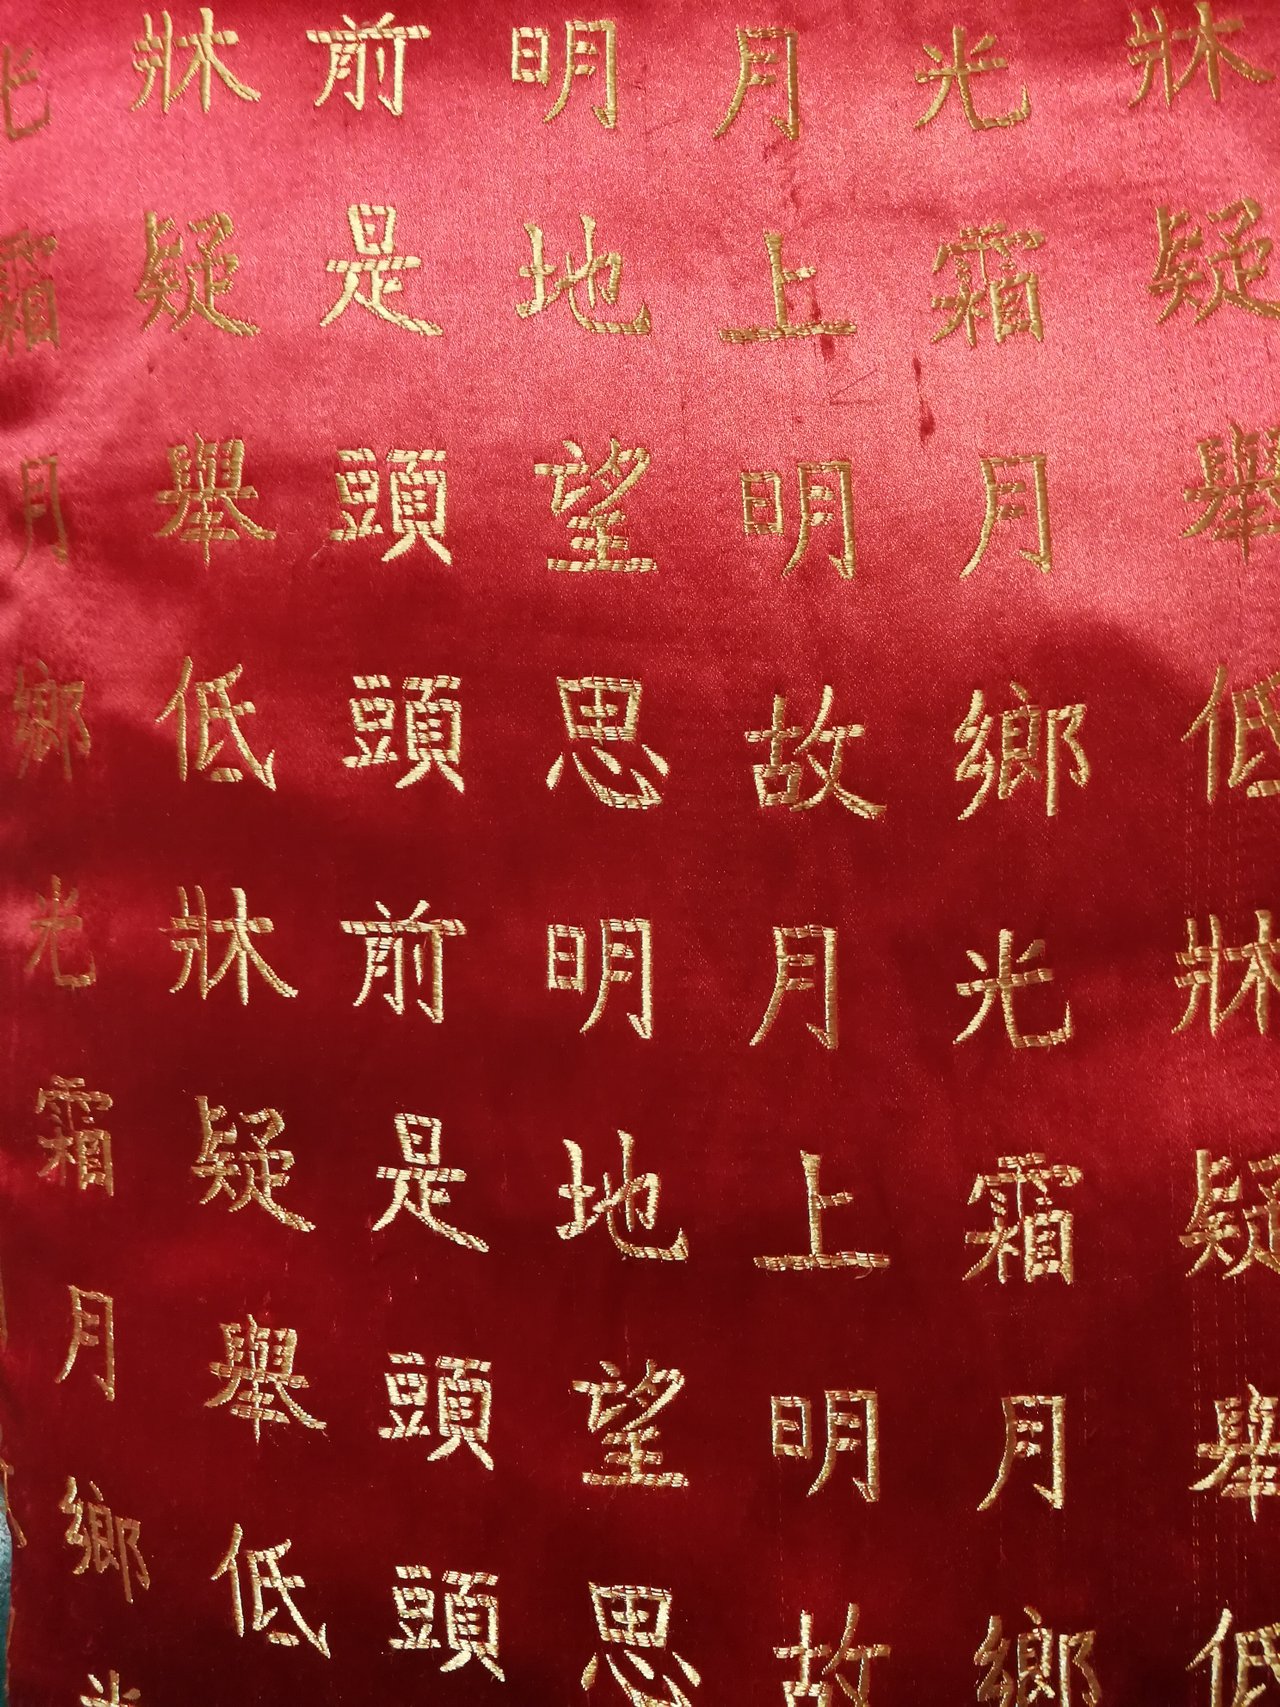 光牀前明月光牀
霜疑是地上霜疑
月舉頭望明月舉
鄉低頭思故鄉低
光牀前明月光牀
霜疑是地上霜疑
月舉頭望明月舉
鄉低頭思故鄉低
光